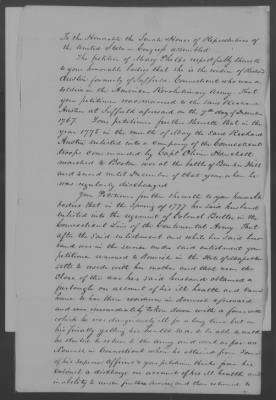 To the Honorable the Senate House of Representatives of
the United States in Congress assembled
The petition of Mary Phelps respectfully sheweth
to your honorable bodies that she is the widow of Richard
Austin formerly of Suffield Connecticut who was a
soldier in the American Revolutionary Army. That
your petitioner was married to the said Richard
Austin at Suffield aforesaid on the 9th day of December
1767. Your petitioner further shews that in the
year 1775 in the month of May the said Richard
Austin enlisted into a company of the Connecticut
troops commanded by Capt Oliver
marched to Boston was at the battle of Bunker Hill
and served until December of that year when he
was regularly discharged
Your Petitioner further sheweth to your honorable
bodies that in the Spring of 1777 her said husband
enlisted into the regiment of Colonel Butler in the
Connecticut line of the Continental Army. That
after the said enlistment and while her said hus-
band was in the service under said enlistment your
petitioner removed to Norwich in the State of Massachu-
setts to reside with her mother and that near the
close of the war her said husband obtained a
furlough on account of his ill health and came
home to her then residence in Norwich aforesaid
and was immediately taken down with a fever with
which he was dangerously ill for a long time but on
his finally getting his health so as to able to walk
he started to return to the army and went as far as
Norwich in Connecticut when he obtained from
of his superior Officers a your petitioner thinks from his
Colonel a discharge on account of his ill health and
inability to under further service and then returned to